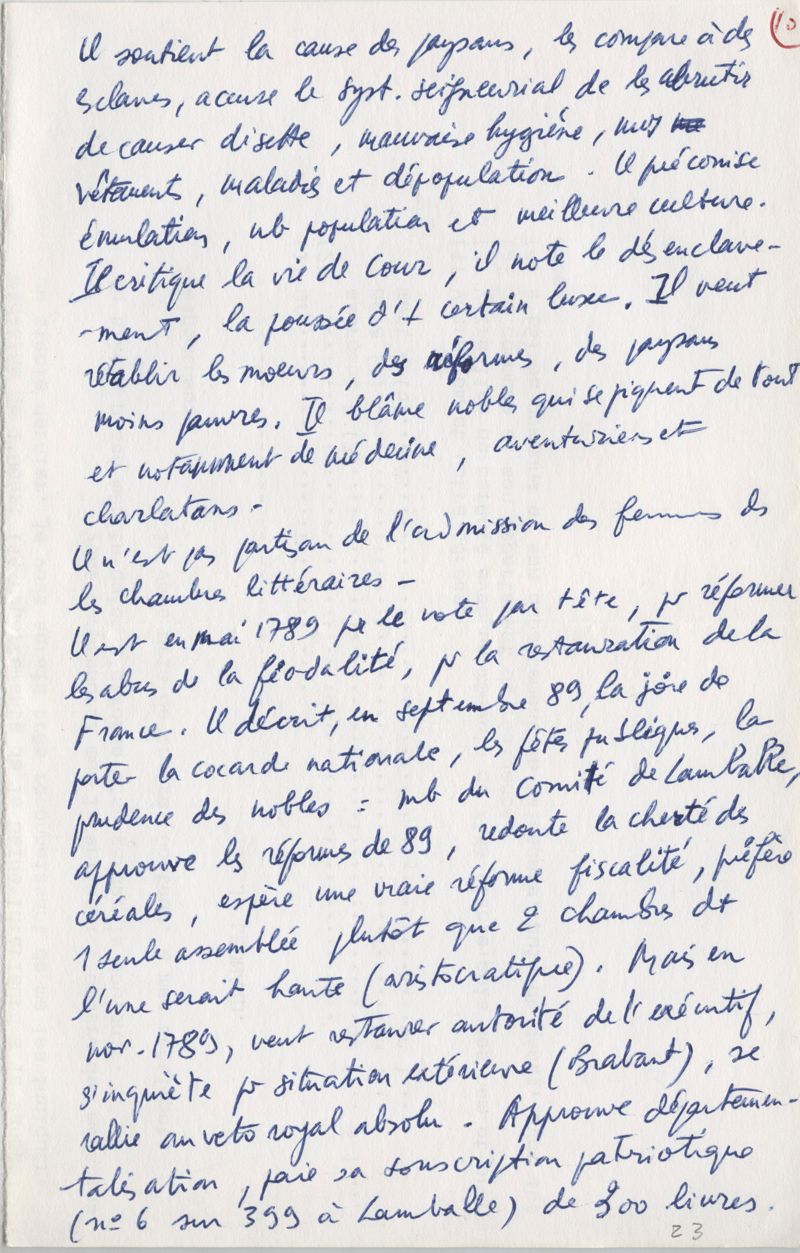 10
Il soutient la cause des paysans, les compare à des
esclaves, accuse le syst. seigneurial de les abrutir
de causer disette, mauvaise hygiène,
vêtements, maladies et dépopulation. Il préconise
émulation, nb population et meilleure culture.
Il critique la vie de Cour, il note le désenclave-
-ment, la poussée d'1 certain luxe. Il veut
rétablir les moeurs, des réformes, des paysans
moins pauvres. Il blâme nobles qui se piquent de tout
et notamment de médecine, aventuriers et
charlatans -
Il n'est pas partisan de l'admission des femmes ds
les chambres littéraires -
Il est en mai 1789 pr le vote par tête, pr réformer
les abus de la féodalité, pr la restauration de la
France. Il décrit, en septembre 89, la joie de
porter la cocarde nationale, les fêtes publiques, la
prudence des nobles = mb du Comité de Lamballe,
approuve les réformes de 89, redoute la cherté des
céréales, espère une vraie réforme fiscalité, préfère
1 seule assemblée plutôt que 2 chambres dt
l'une serait haute (aristocratique). Mais en
nov. 1789, veut restaurer autorité de l'exécutif,
s'inquiète pr situation extérieure (Brabant), se
rallie au veto royal absolu. Approuve départemen-
talisation, paie sa souscription patriotique
(n° 6 sur 399 à Lamballe) de 300 livres.
23